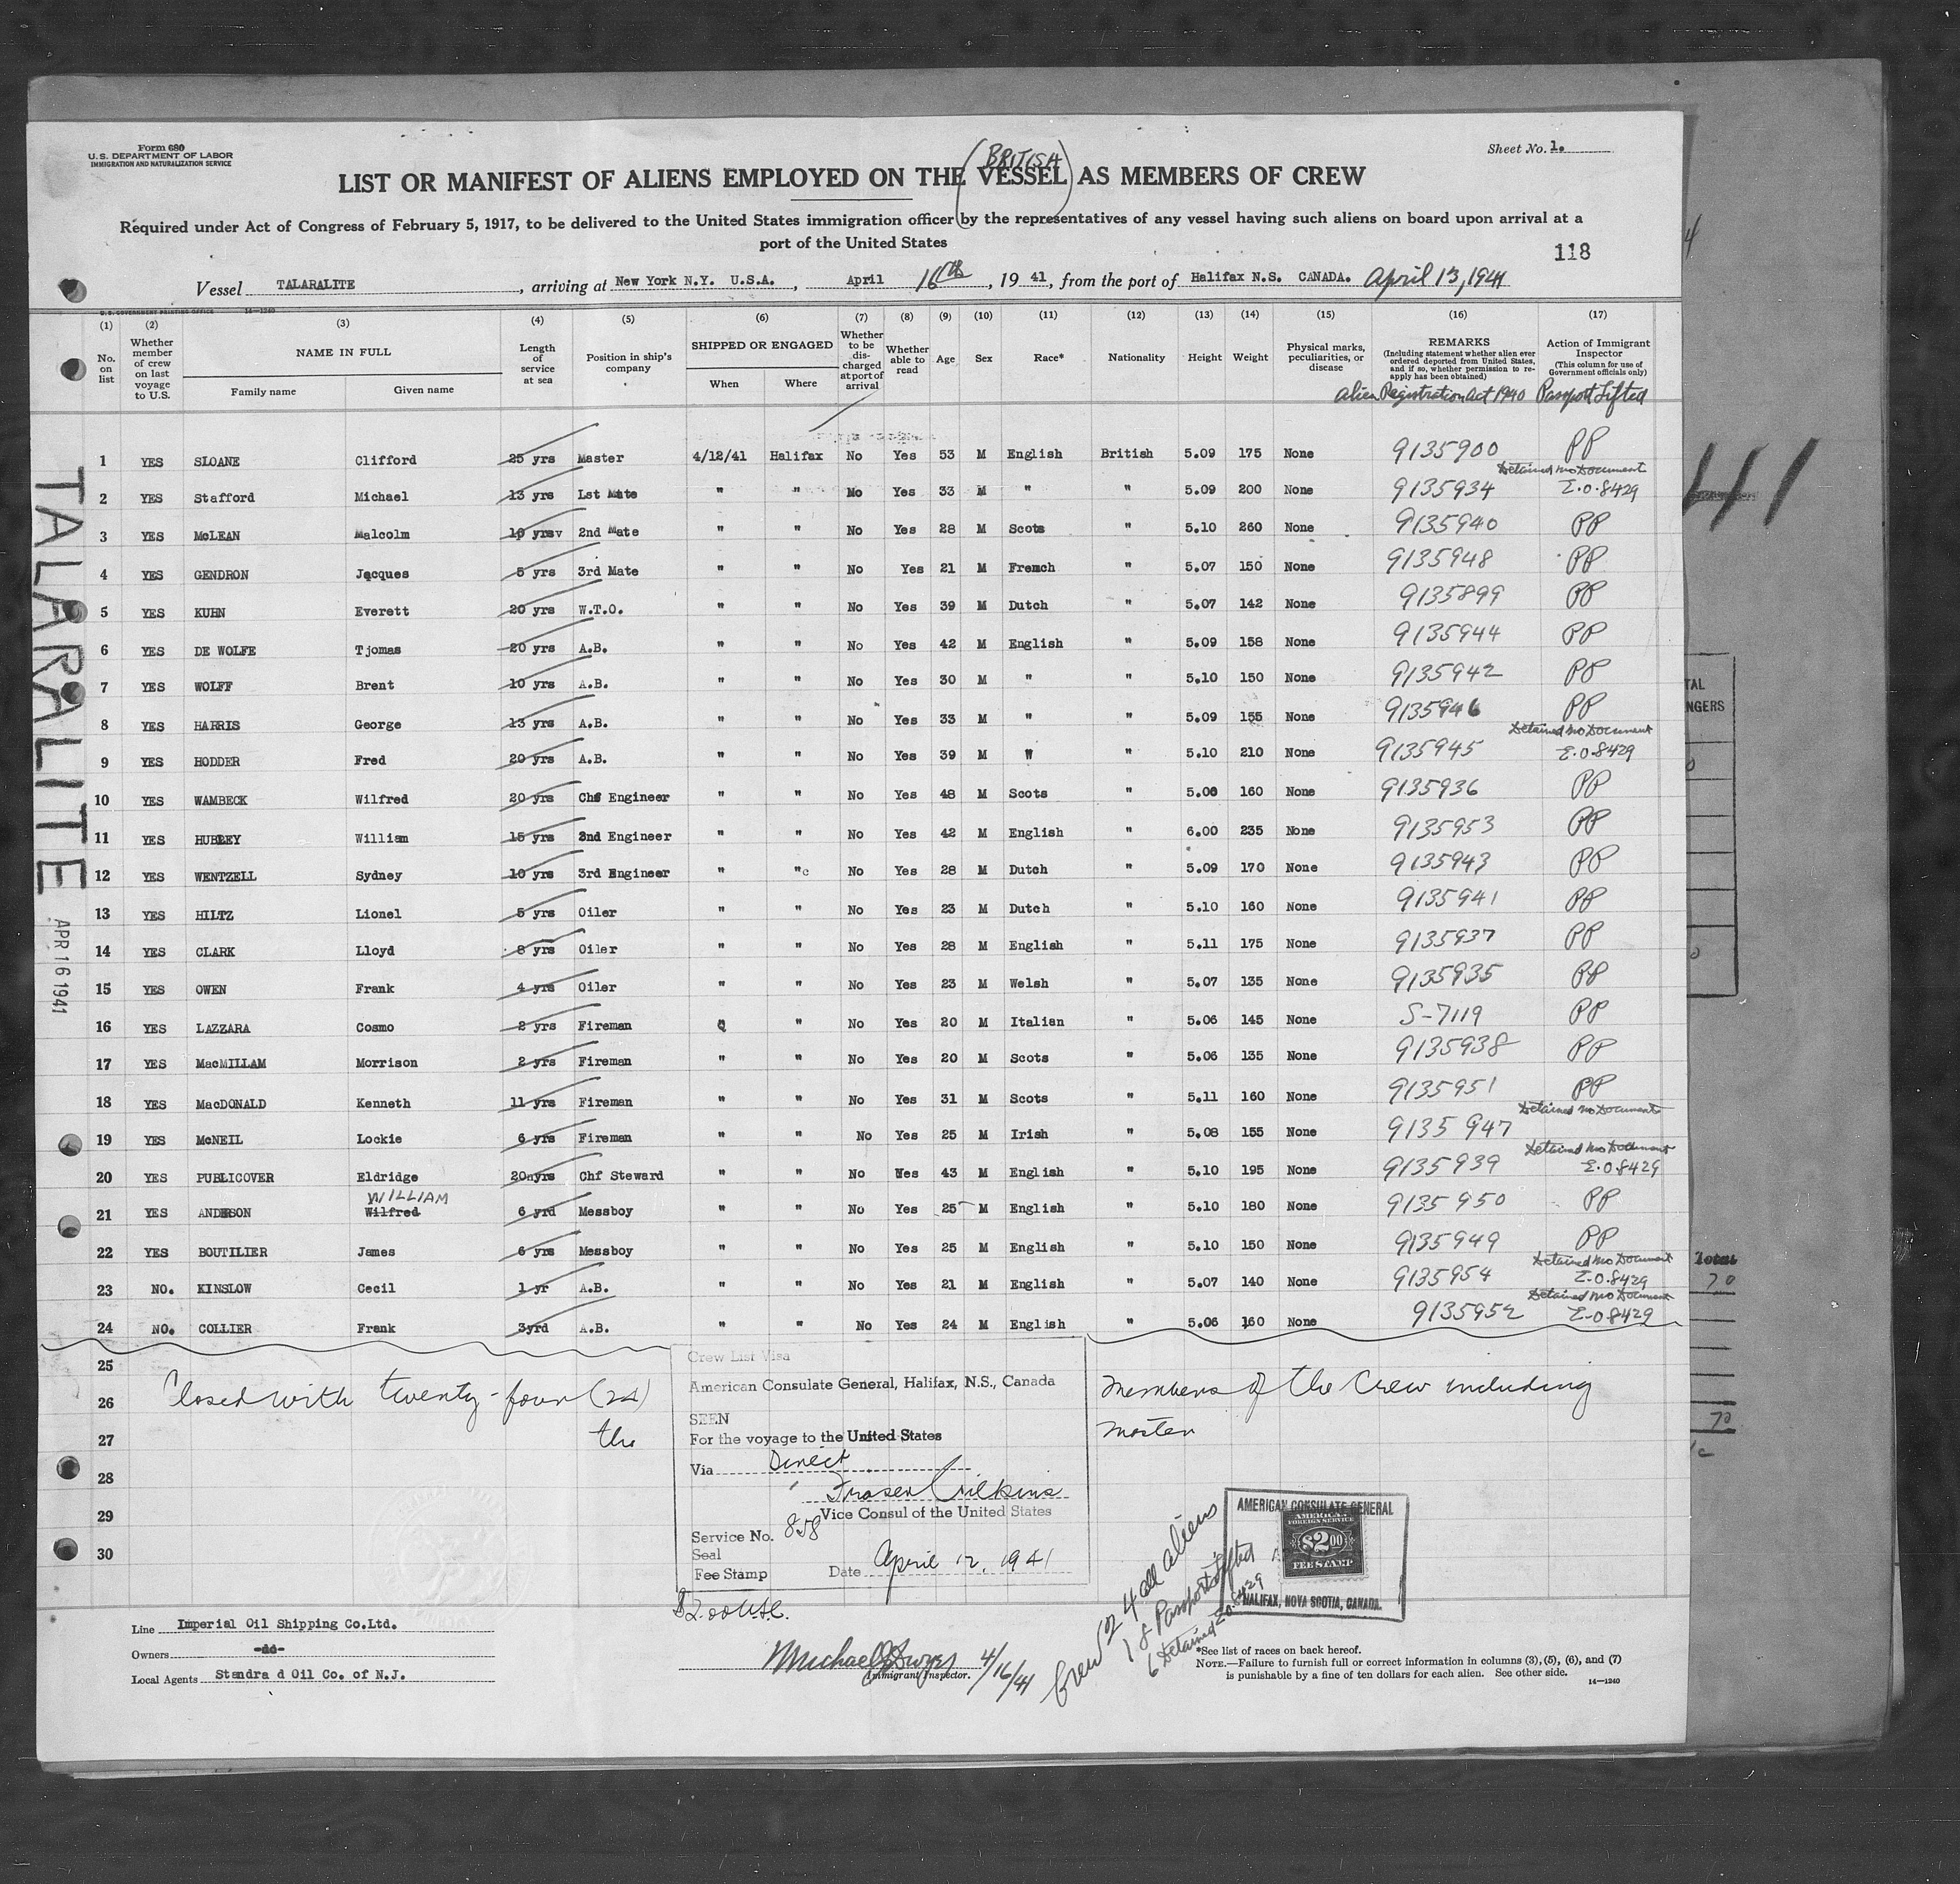 Form 680
U.S. DEPARTMENT OF LABOR
IMMIGRATION AND NATURALIZATION SERVICE
Sheet No. 1.
(BRITISH)
LIST OR MANIFEST OF ALIENS EMPLOYED ON THE VESSEL AS MEMBERS OF CREW
Required under Act of Congress of February 5, 1917, to be delivered to the United States immigration officer by the representatives of any vessel having such aliens on board upon arrival at a
port of the United States
118
Vessel TALARALITE, arriving at New York N.Y. U.S.A., April 16th, 19 41, from the port of Halifax N.S. CANADA. April 13, 1941
U.S. GOVERNMENT PRINTING OFFICE 14—1240
(1) No. on list
(2) Whether member of crew on last voyage to U.S.
(3) NAME IN FULL Family name Given name
(4) Length of service at sea
(5) Position in ship's company
(6) SHIPPED OR ENGAGED When Where
(7) Whether to be discharged at port of arrival
(8) Whether able to read
(9) Age
(10) Sex
(11) Race*
(12) Nationality
(13) Height
(14) Weight
(15) Physical marks, peculiarities, or disease
(16) REMARKS (Including statement whether alien ever ordered deported from United States, and if so, whether permission to reapply has been obtained) Alien Registration Act 1940
(17) Action of Immigrant Inspector (This column for use of Government officials only) Passport Lifted
1 YES SLOANE Clifford 25 yrs Master 4/12/41 Halifax No Yes 53 M English British 5.09 175 None 9135900 PP
2 YES Stafford Michael 13 yrs Lst Mate " " No Yes 33 M " " 5.09 200 None 9135934 Detained No Document E.O.8429
3 YES McLEAN Malcolm 10 yrsv 2nd Mate " " No Yes 28 M Scots " 5.10 260 None 9135940 PP
4 YES GENDRON Jacques 5 yrs 3rd Mate " " No Yes 21 M French " 5.07 150 None 9135948 PP
5 YES KUHN Everett 20 yrs W.T.O. " " No Yes 39 M Dutch " 5.07 142 None 9135899 PP
6 YES DE WOLFE Tjomas 20 yrs A.B. " " No Yes 42 M English " 5.09 158 None 9135944 PP
7 YES WOLFF Brent 10 yrs A.B. " " No Yes 30 M " " 5.10 150 None 9135942 PP
8 YES HARRIS George 13 yrs A.B. " " No Yes 33 M " " 5.09 155 None 9135946 PP
9 YES HODDER Fred 20 yrs A.B. " " No Yes 39 M " " 5.10 210 None 9135945 Detained No Document E.O.8429
10 YES WAMBECK Wilfred 20 yrs Chf Engineer " " No Yes 48 M Scots " 5.06 160 None 9135936 PP
11 YES HUBLEY William 15 yrs 2nd Engineer " " No Yes 42 M English " 6.00 235 None 9135953 PP
12 YES WENTZELL Sydney 10 yrs 3rd Engineer " "c No Yes 28 M Dutch " 5.09 170 None 9135943 PP
13 YES HILTZ Lionel 5 yrs Oiler " " No Yes 23 M Dutch " 5.10 160 None 9135941 PP
14 YES CLARK Lloyd 8 yrs Oiler " " No Yes 28 M English " 5.11 175 None 9135937 PP
15 YES OWEN Frank 4 yrs Oiler " " No Yes 23 M Welsh " 5.07 135 None 9135935 PP
16 YES LAZZARA Cosmo 2 yrs Fireman " " No Yes 20 M Italian " 5.06 145 None S-7119 PP
17 YES MacMILLAM Morrison 2 yrs Fireman " " No Yes 20 M Scots " 5.06 135 None 9135938 PP
18 YES MacDONALD Kenneth 11 yrs Fireman " " No Yes 31 M Scots " 5.11 160 None 9135951 PP
19 YES McNEIL Lockie 6 yrs Fireman " " No Yes 25 M Irish " 5.08 155 None 9135 947 Detained No Document
20 YES PUBLICOVER Eldridge 20nyrs Chf Steward " " No Wes 43 M English " 5.10 195 None 9135939 Detained No Document E.O.8429
21 YES ANDERSON Wilfred WILLIAM 6 yrd Messboy " " No Yes 25 M English " 5.10 180 None 9135950 PP
22 YES BOUTILIER James 6 yrs Messboy " " No Yes 25 M English " 5.10 150 None 9135949 PP
23 NO. KINSLOW Cecil 1 yr A.B. " " No Yes 21 M English " 5.07 140 None 9135954 Detained No Document E.O.8429
24 NO. COLLIER Frank 3yrd A.B. " " No Yes 24 M English " 5.06 160 None 9135952 Detained No Document E.O.8429
25
26
27
28
29
30
Closed with twenty-four (24) members of the crew including
the master
Crew List Visa
American Consulate General, Halifax, N.S., Canada
SEEN
For the voyage to the United States
Via Direct
Fraser Wilkins
Vice Consul of the United States
Service No. 858
Seal
Fee Stamp Date April 12, 1941
$2.00
AMERICAN CONSULATE GENERAL
AMERICAN
FOREIGN SERVICE
$2.00
FEE STAMP
HALIFAX, NOVA SCOTIA, CANADA.
Crew 24 all aliens
18 Passport Lifted
6 Detained E.O.8429
Line Imperial Oil Shipping Co.Ltd.
Owners -do-
Local Agents Standra d Oil Co. of N.J.
Michael J Dwyer 4/16/41
Immigrant Inspector.
*See list of races on back hereof.
NOTE.—Failure to furnish full or correct information in columns (3), (5), (6), and (7)
is punishable by a fine of ten dollars for each alien. See other side.
14—1240
TALARALITE
APR 16 1941
41
TAL
NGERS
Total
70
70